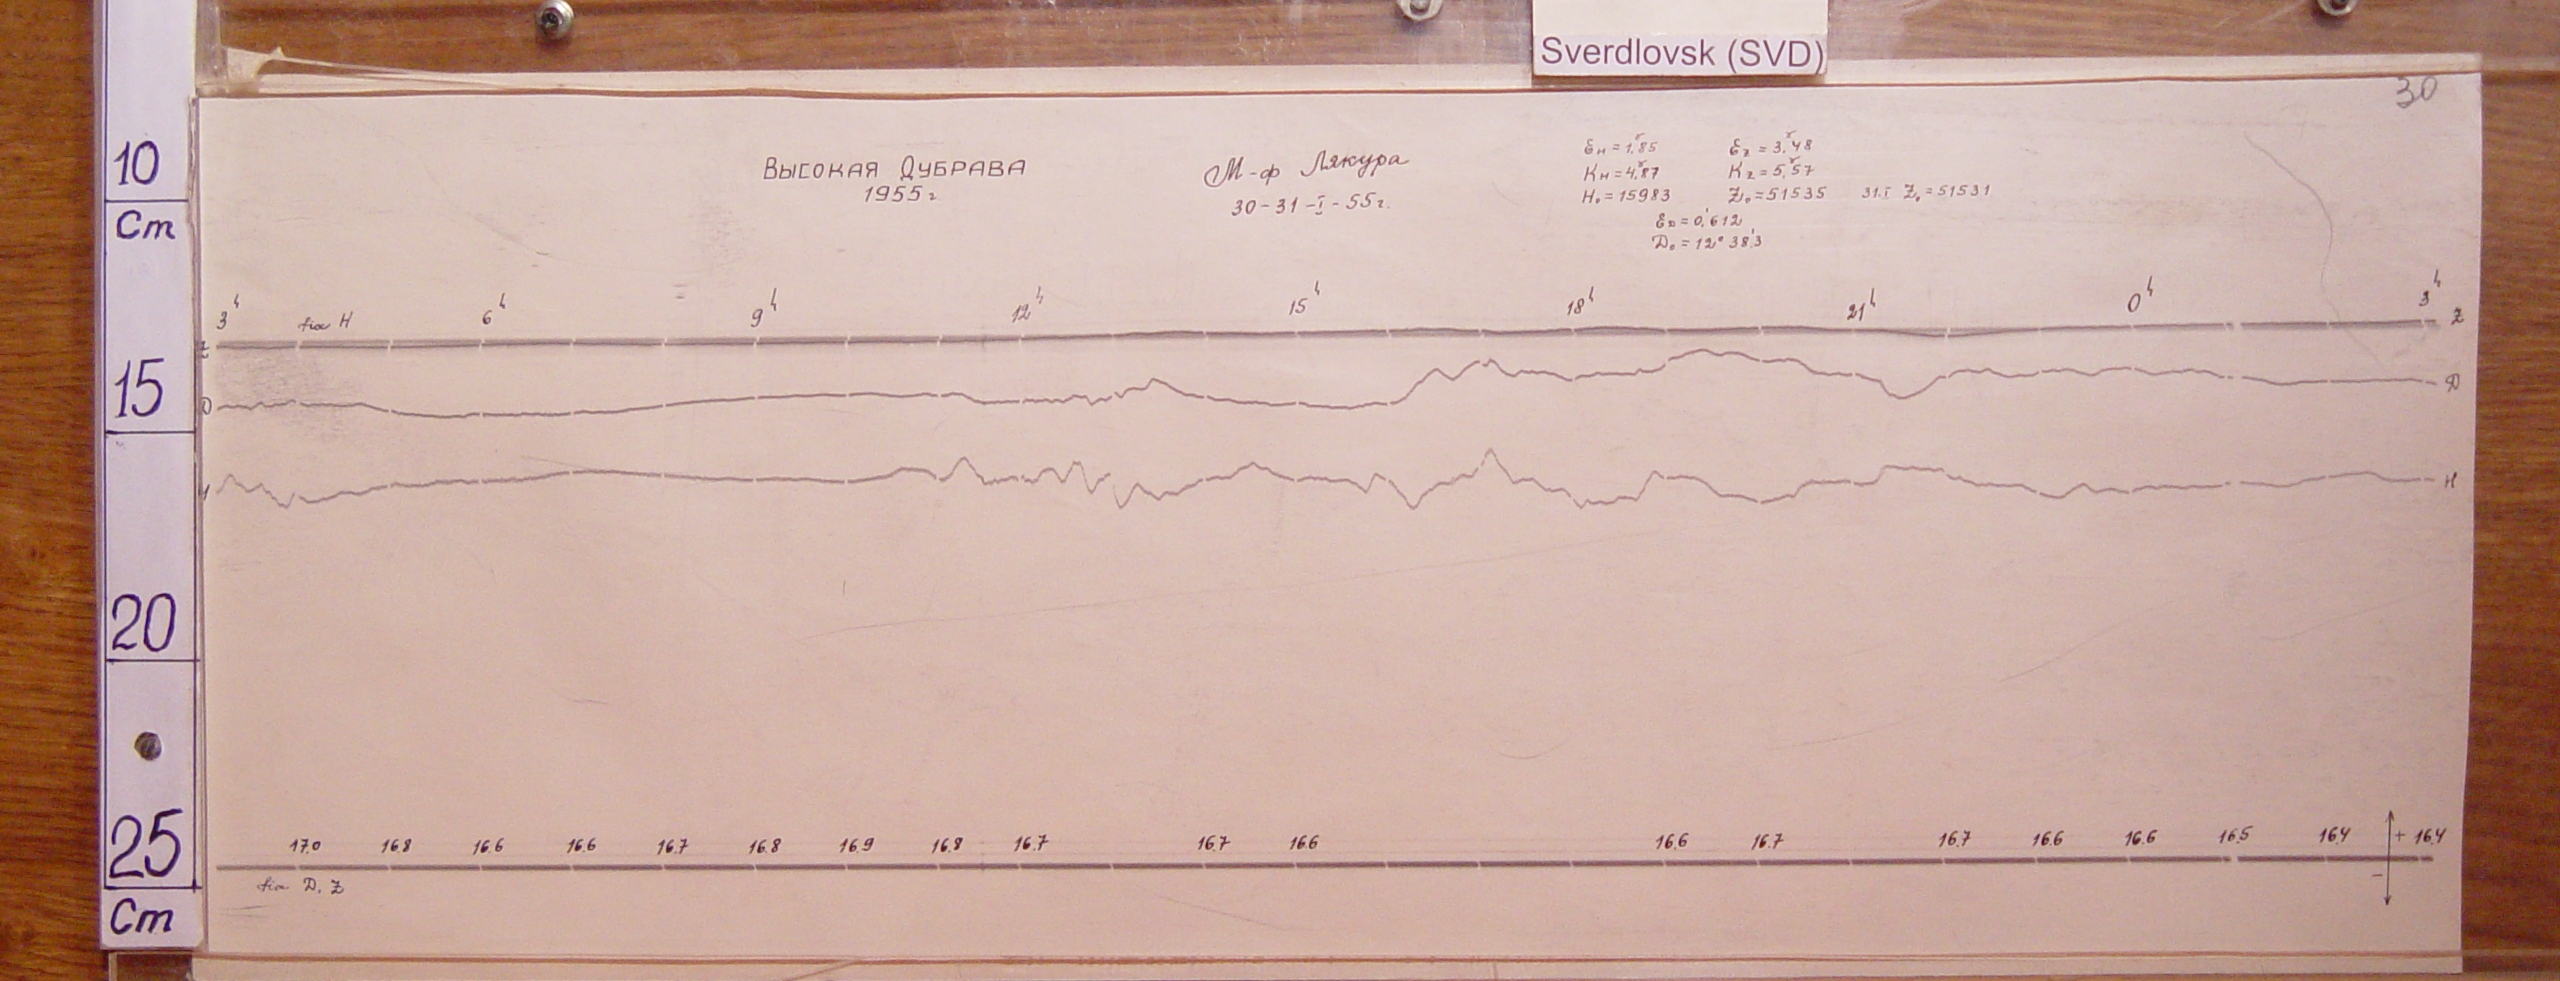 Sverdlovsk (SVD)
30
10
Cm
15
20
25
Cm
ВЫСОКАЯ ДУБРАВА
1955 г.
М-ф Лякура
30-31-I-55 г.
Ɛн = 1,85 Ɛz = 3,48
Kн = 4,87 Kz = 5,57
H₀ = 15983 Z₀ = 51535 31.I Z₀ = 51531
ƐD = 0,612
D₀ = 12° 38,3
3ʰ fix H 6ʰ 9ʰ 12ʰ 15ʰ 18ʰ 21ʰ 0ʰ 3ʰ
Z Z
D D
H H
17.0 16.8 16.6 16.6 16.7 16.8 16.9 16.8 16.7 16.7 16.6 16.6 16.7 16.7 16.6 16.6 16.5 16.4 + 16.4
fix D, Z −